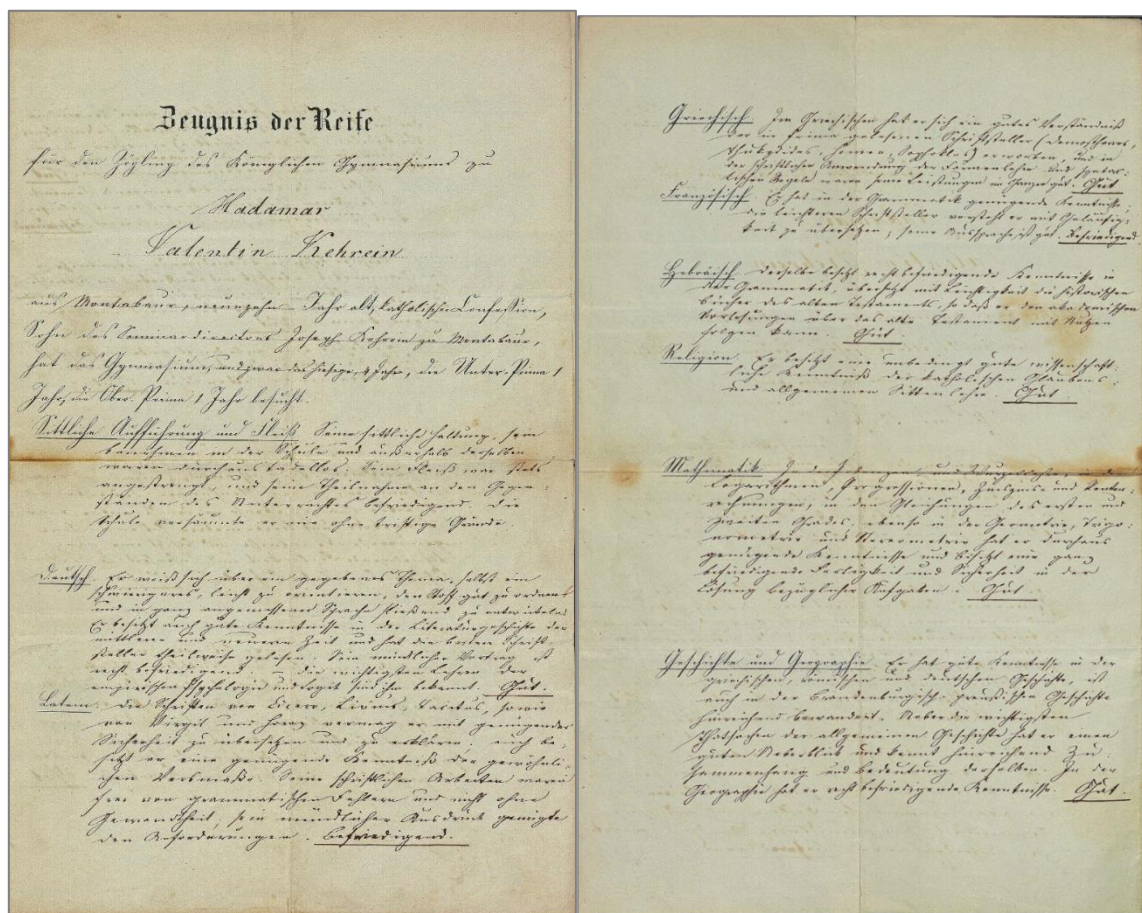 Zeugnis der Reife
für den Zögling des Königlichen Gymnasiums zu
Hadamar
Valentin Kehrein
aus Montabaur, neunzehn Jahr alt, katholischer Confession,
Sohn des Seminardirectors Joseph Kehrein zu Montabaur,
hat das Gymnasium, und zwar das hiesige, 4 Jahr, die Unter-Prima 1
Jahr, die Ober-Prima 1 Jahr besucht.
Sittliche Aufführung und Fleiß. Seine sittliche Haltung, sein
Benehmen in der Schule und außerhalb derselben
waren durchaus tadellos. Sein Fleiß war stets
angestrengt, und seine Theilnahme an den Gegen-
ständen des Unterrichtes befriedigend. Die
Schule versäumte er nie ohne triftige Gründe.
Deutsch. Er weiß sich über ein gegebenes Thema, selbst ein
schwierigeres, leicht zu orientieren, den Stoff gut zu ordnen
und in ganz angemessener Sprache fließend zu entwickeln.
Er besitzt auch gute Kenntnisse in der Literaturgeschichte der
mittleren und neueren Zeit und hat die besten Schrift-
steller theilweise gelesen. Sein mündlicher Vortrag ist
recht befriedigend. – Die wichtigsten Lehren der
empirischen Psychologie und Logik sind ihm bekannt. Gut.
Latein. Die Schriften von Cicero, Livius, Tacitus, sowie
von Virgil und Horaz vermag er mit genügender
Sicherheit zu übersetzen und zu erklären, auch be-
sitzt er eine genügende Kenntniß der
Versmaße. Seine schriftlichen Arbeiten waren
frei von grammatischen Fehlern und nicht ohne
Gewandtheit; sein mündlicher Ausdruck genügte
den Anforderungen. Befriedigend.
Griechisch. Im Griechischen hat er sich ein gutes Verständniß
der in Prima gelesenen Schriftsteller (Demosthenes,
Thukydides, Homer, Sophokles) erworben, und in
der schriftlichen Anwendung der Formenlehre und syntak-
tischen Regeln waren seine Leistungen im Ganzen gut. Gut
Französisch. Er hat in der Grammatik genügende Kenntnisse,
die leichteren Schriftsteller versteht er mit Geläufig-
keit zu übersetzen; seine Aussprache ist gut. Befriedigend.
Hebräisch. Derselbe besitzt recht befriedigende Kenntnisse in
der Grammatik, übersetzt mit Leichtigkeit die historischen
Bücher des alten Testaments, so daß er den akademischen
Vorlesungen über das alte Testament mit Nutzen
folgen kann. Gut
Religion. Er besitzt eine unbedingt gute wissenschaft-
liche Kenntniß der katholischen Glaubens-
und allgemeinen Sittenlehre. Gut.
Mathematik. In den Potenzen und Wurzelgrößen, in den
Logarithmen, Progressionen, Zinszins- und Renten-
rechnungen, in den Gleichungen des ersten und
zweiten Grades, ebenso in der Geometrie, Trigo-
nometrie und Stereometrie hat er durchaus
genügende Kenntnisse und besitzt eine ganz
befriedigende Fertigkeit und Sicherheit in der
Lösung bezüglicher Aufgaben. Gut.
Geschichte und Geographie. Er hat gute Kenntnisse in der
griechischen, römischen und deutschen Geschichte, ist
auch in der Brandenburgisch-preußischen Geschichte
hinreichend bewandert. Ueber die wichtigsten
Thatsachen der allgemeinen Geschichte hat er einen
guten Ueberblick und kennt hinreichend Zu-
sammenhang und Bedeutung derselben. In der
Geographie hat er recht befriedigende Kenntnisse. Gut.